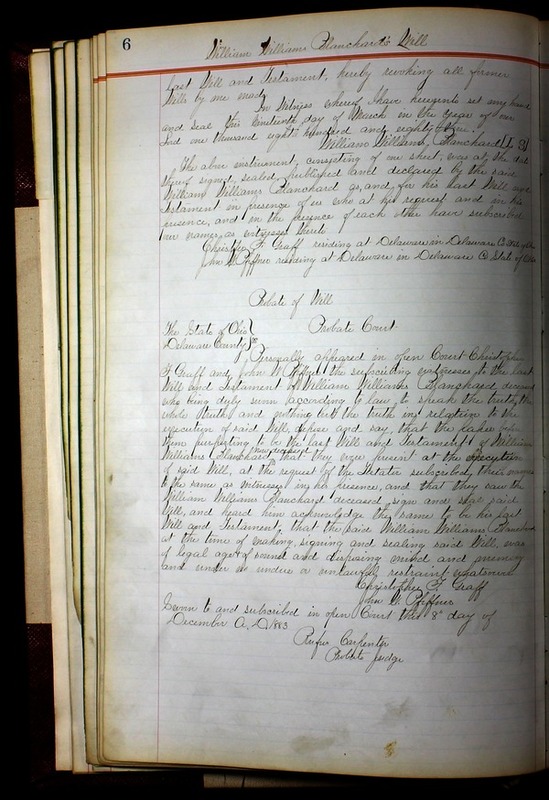 6
William Williams Blanchard's Will
Last Will and Testament, hereby revoking all former
Wills by me made
In Witness whereof I have hereunto set my hand
and seal this nineteenth day of March in the year of our
Lord one thousand eight hundred and eighty
William Williams Blanchard
The above instrument, consisting of one sheet, was at the date
thereof signed, sealed, published and declared by the said
William Williams Blanchard as, and for his last Will and
Testament in presence of us who at his request and in his
presence, and in the presence of each other have subscribed
our names as witnesses thereto
Christopher F. Graff residing at Delaware in Delaware Co State of
John W Pfiffner residing at Delaware in Delaware Co State of Ohio
Probate of Will
The State of Ohio } Probate Court
Delaware County } ss
Personally appeared in open Court Christopher
F Graff and John W Pfiffner the subscribing witnesses to the last
Will and Testament of William Williams Blanchard deceased
who being duly sworn according to law, to speak the truth, the
whole truth and nothing but the truth in relation to the
execution of said Will, depose and say, that the paper before
them purporting to be the last Will and Testament of William
Williams Blanchard now deceased that they were present at the execution
of said Will, at the request of the Testator subscribed their names
to the same as witnesses in his presence, and that they saw the
William Williams Blanchard deceased, sign and seal said
Will, and heard him acknowledge the same to be his last
Will and Testament, that the said William Williams Blanchard
at the time of making, signing and sealing said Will, was
of legal age, of sound and disposing mind and memory
and under no undue or unlawful restraint whatever
Christopher F. Graff
John W. Pfiffner
Sworn to and subscribed in open Court this 8" day of
December A.D. 1883
Rufus Carpenter
Probate Judge